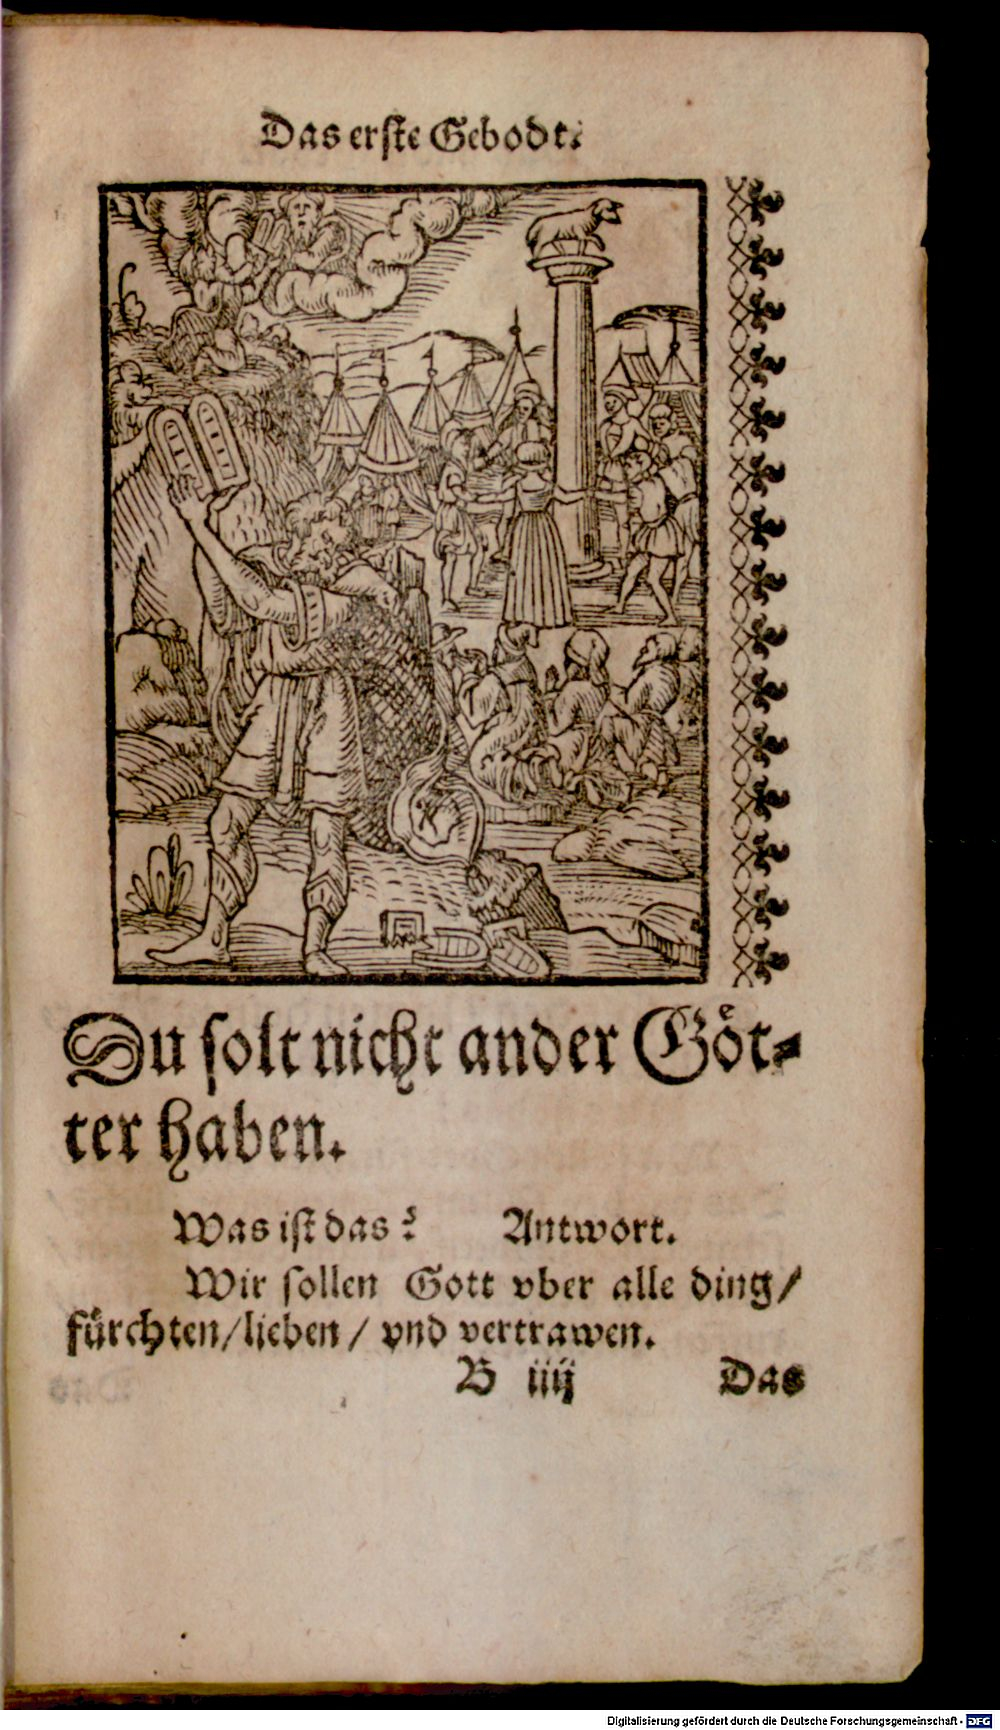 Das erste Gebodt.
Du solt nicht ander Göt-
ter haben.
Was ist das? Antwort.
Wir sollen Gott vber alle ding/
fürchten/lieben/ vnd vertrawen.
B iiij Das
Digitalisierung gefördert durch die Deutsche Forschungsgemeinschaft - DFG